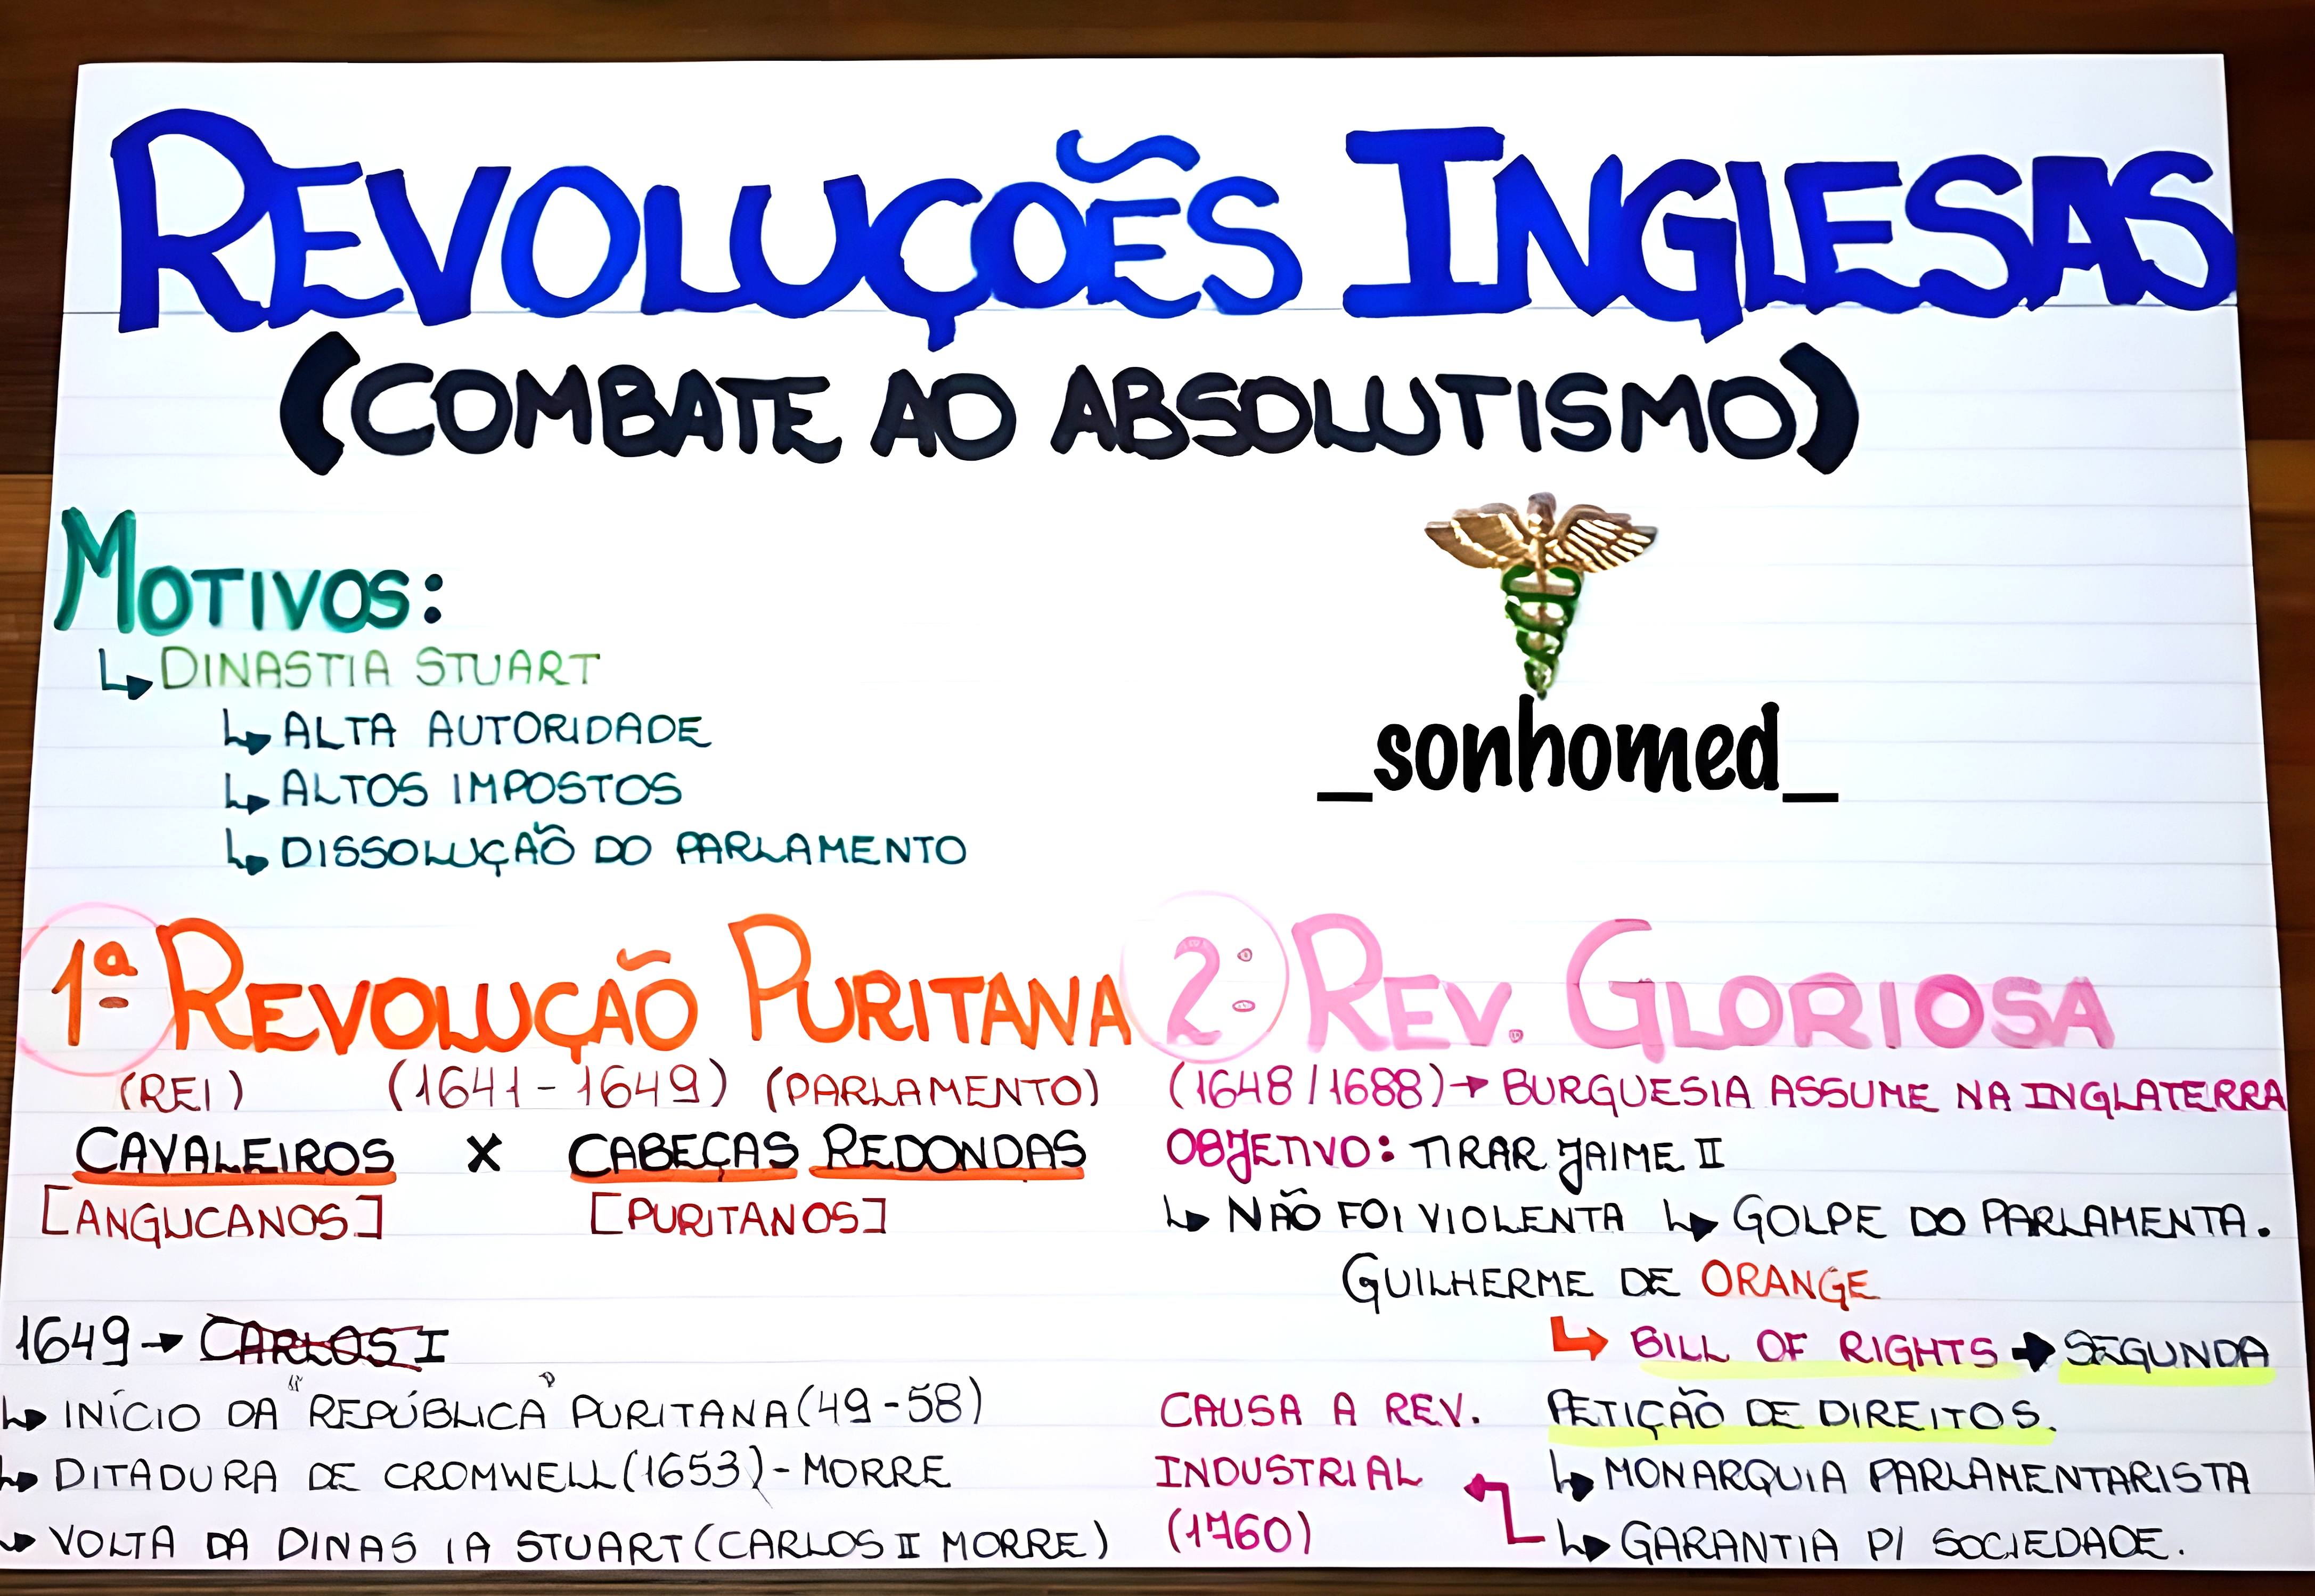 REVOLUÇOẼS INGLESAS
(COMBATE AO ABSOLUTISMO)
MOTIVOS:
↳ DINASTIA STUART
↳ ALTA AUTORIDADE
↳ ALTOS IMPOSTOS
↳ DISSOLUÇÃO DO PARLAMENTO
_sonhomed_
1ª REVOLUÇÃO PURITANA
(REI) (1641-1649) (PARLAMENTO)
CAVALEIROS X CABEÇAS REDONDAS
[ANGLICANOS] [PURITANOS]
1649 → CARLOS I
↳ INÍCIO DA "REPÚBLICA" PURITANA (49-58)
↳ DITADURA DE CROMWELL (1653) - MORRE
↳ VOLTA DA DINAS IA STUART (CARLOS II MORRE)
2: REV. GLORIOSA
(1648/1688) → BURGUESIA ASSUME NA INGLATERRA
OBJETIVO: TIRAR JAIME II
↳ NÃO FOI VIOLENTA ↳ GOLPE DO PARLAMENTA.
GUILHERME DE ORANGE
↳ BILL OF RIGHTS → SEGUNDA
PETIÇÃO DE DIREITOS.
↳ MONARQUIA PARLAMENTARISTA
↳ GARANTIA P/ SOCIEDADE.
CAUSA A REV.
INDUSTRIAL
(1760)